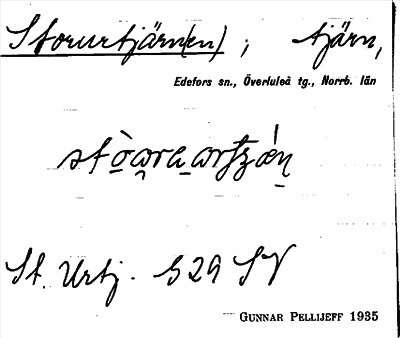 Storurtjärn(en) ; tjärn,
Edefors sn., Överluleå tg., Norrb. län
St. Urtj. S 29 SV
GUNNAR PELLIJEFF 1935